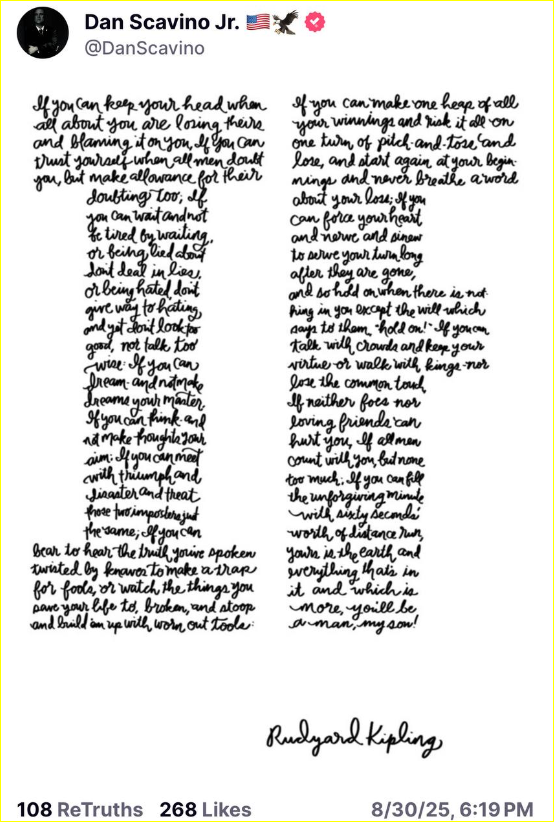 Dan Scavino Jr. 🇺🇸🦅
@DanScavino
If you can keep your head when
all about you are losing theirs
and blaming it on you, If you can
trust yourself when all men doubt
you, but make allowance for their
doubting too; If
you can wait and not
be tired by waiting,
or being lied about
don't deal in lies,
or being hated don't
give way to hating,
and yet don't look too
good, nor talk too
wise: If you can
dream-and not make
dreams your master,
If you can think-and
not make thoughts your
aim; If you can meet
with triumph and
disaster and treat
those two imposters just
the same; If you can
bear to hear the truth you've spoken
twisted by knaves to make a trap
for fools, or watch the things you
gave your life to, broken, and stoop
and build 'em up with worn out tools:
If you can make one heap of all
your winnings and risk it all on
one turn of pitch-and-toss and
lose, and start again at your begin-
nings and never breathe a word
about your loss; If you
can force your heart
and nerve and sinew
to serve your turn long
after they are gone,
and so hold on when there is not-
hing in you except the will-which
says to them "hold on!" If you can
talk with crowds and keep your
virtue-or walk with kings-nor
lose the common touch,
If neither foes nor
loving friends can
hurt you, If all men
count with you, but none
too much; If you can fill
the unforgiving minute
with sixty seconds'
worth, of distance run,
yours is the earth, and
everything that's in
it and which is
more, you'll be
a man, my son!
Rudyard Kipling
108 ReTruths 268 Likes 8/30/25, 6:19 PM